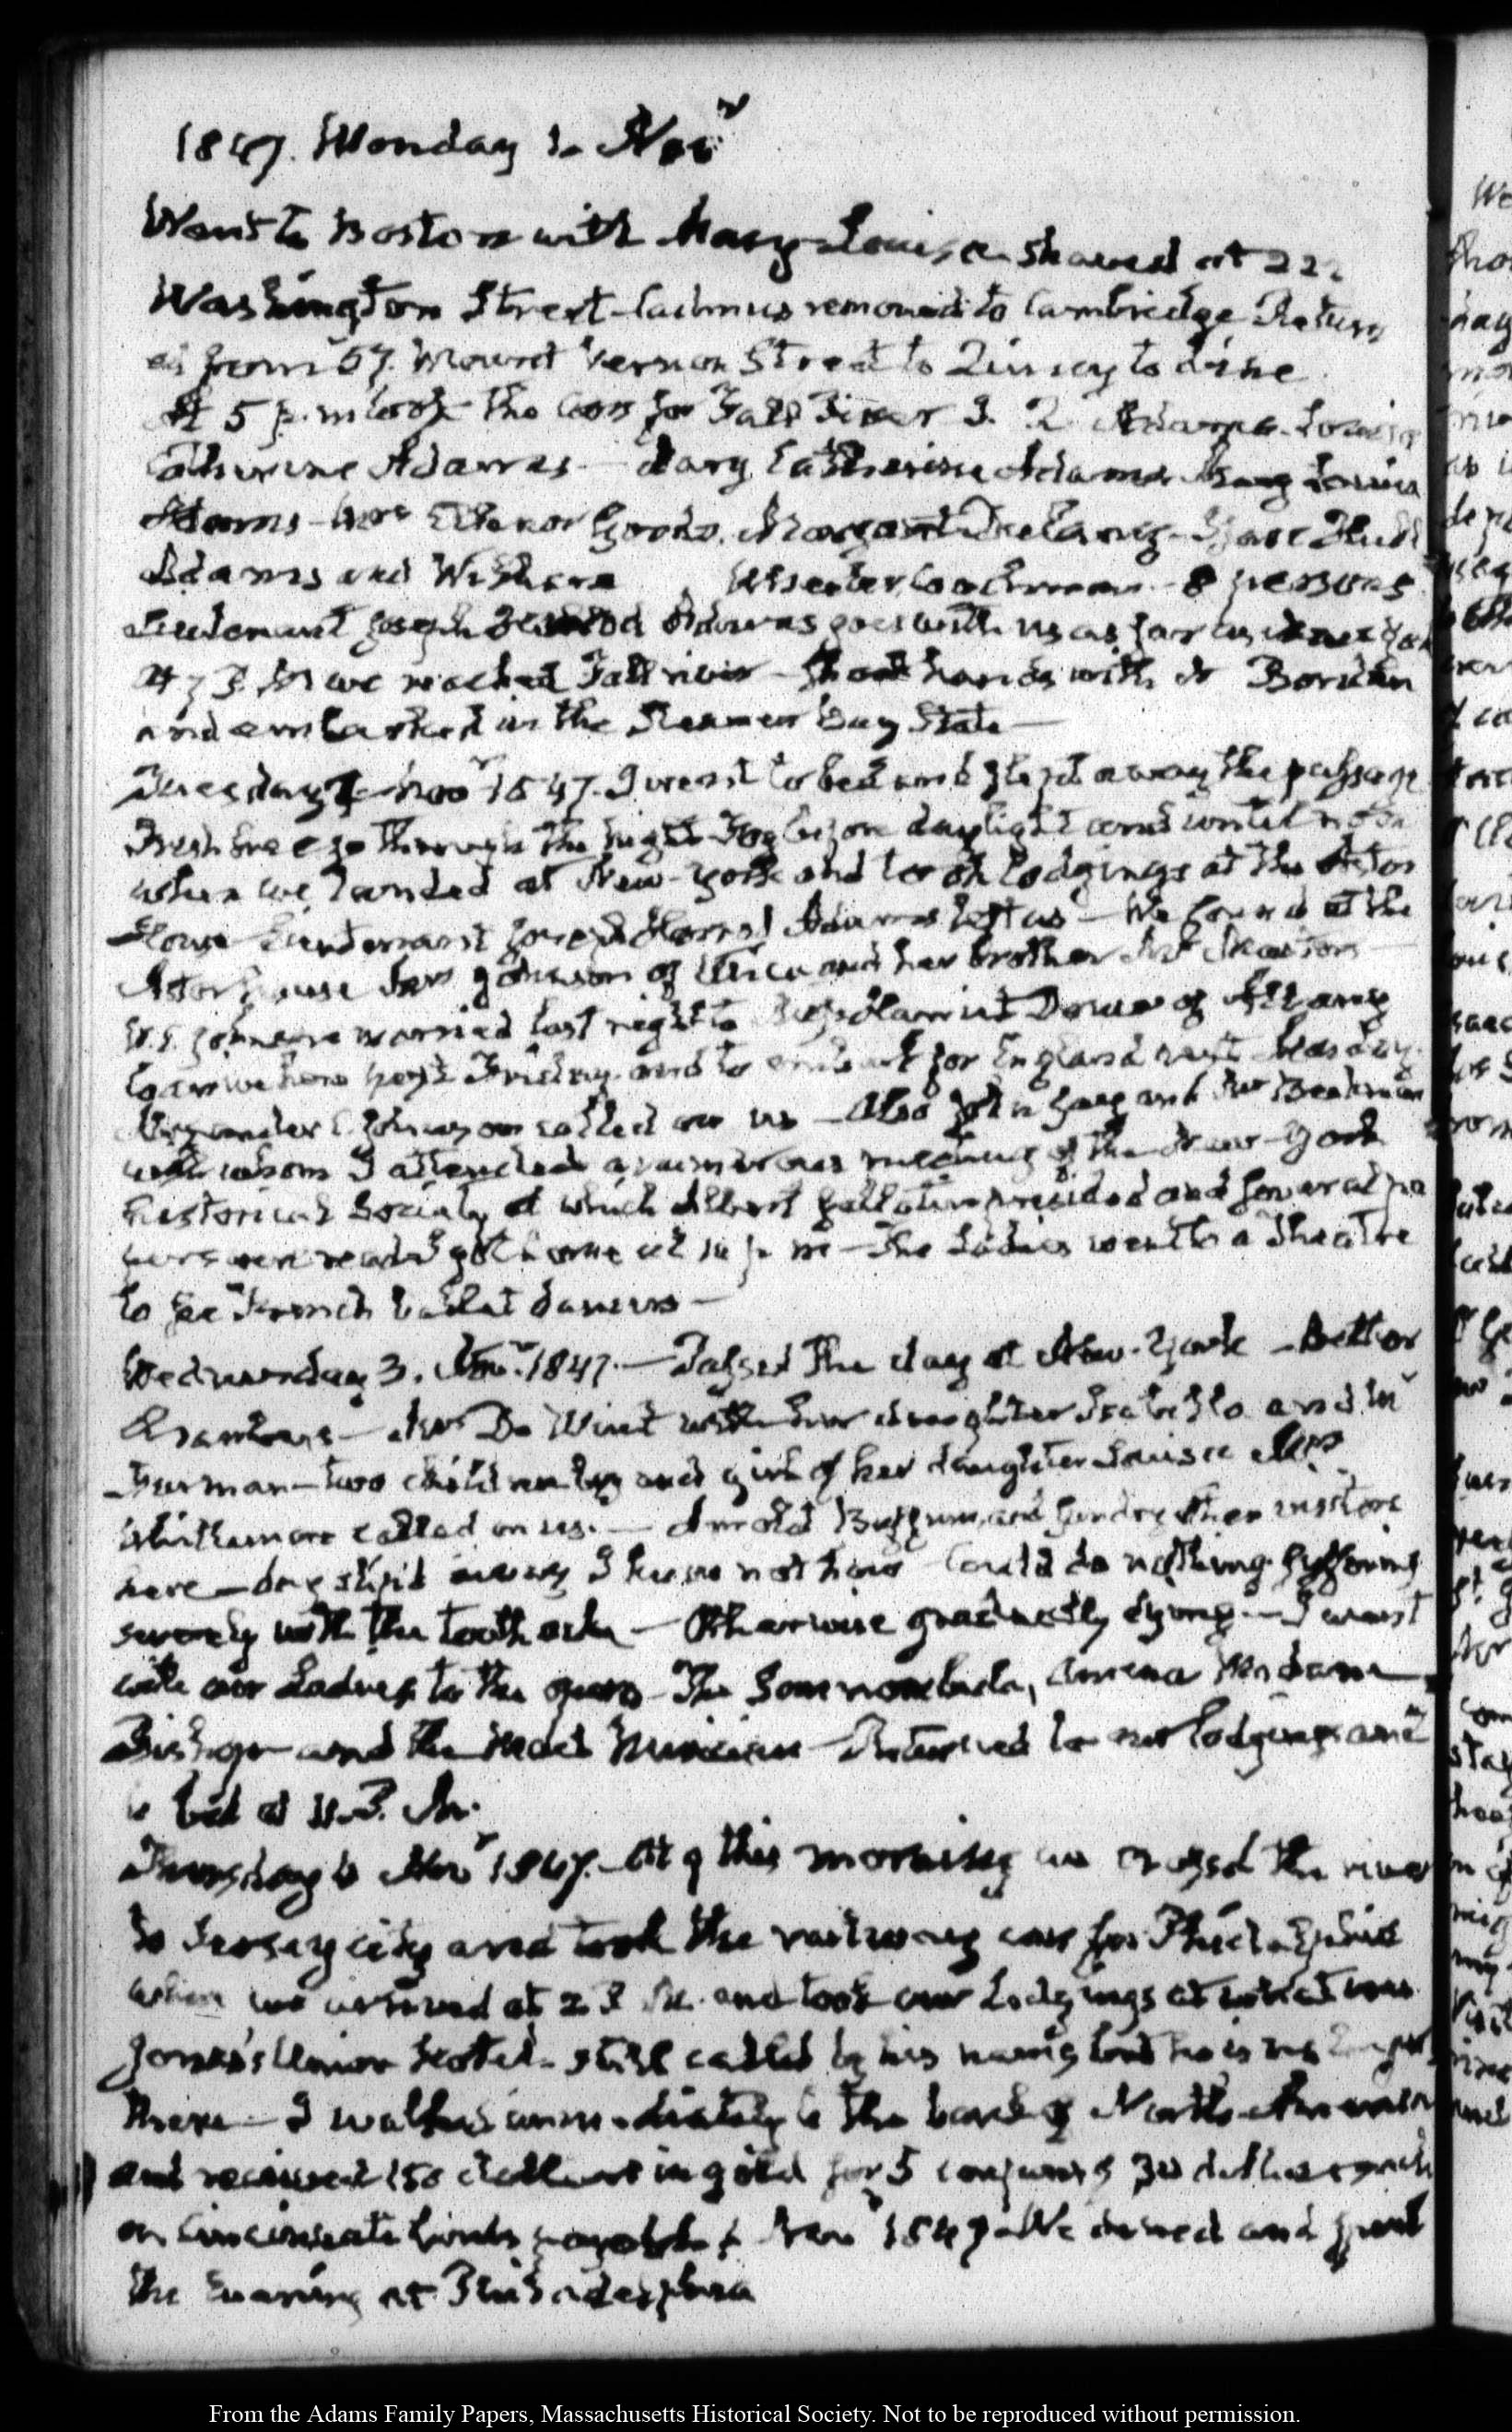 1847. Monday 1. Novr
Went to Boston with Mary Louisa shaved at 222
Washington Street removed to Cambridge Return
ed from 57. Mount Vernon Street to Quincy to dine
At 5 p.m. took the cars for Fall River J. Q. Adams. Louisa
Catherine Adams — Mary Catherine Adams Mary Louisa
Adams — Margaret
Adams and William coachman — 8 persons
Lieutenant Joseph Harrod Adams goes with us as far as New York
At 7 P.M. we reached Fall river — shook hands with Dr Borden
and embarked in the Steamer Bay State —
Tuesday 2. Novr 1847. I went to bed and slept away the passage
Fresh breeze through the night Fog before daylight and until noon
when we landed at New-York and took lodgings at the Astor
House Lieutenant Joseph Harrod Adams left us — We found at the
Astor house Mrs Johnson of Utica and her brother Mr
W. S. Johnson married last night to of Albany
to next Friday and to embark for England next Monday.
Alexander Johnson called on us — Also John Jay and Mr Beekman
with whom I attended a numerous meeting of the New-York
historical Society at which Albert Gallatin presided and several pa
pers were read I got home at 10 p m — The Ladies went to a Theatre
to see French ballet dancers —
Wednesday 3. Novr 1847. — Passed the day at New-York — better
— Mrs De Wint with her daughter Isabella and Mr
— two children boy and girl of her daughter Louisa Miss
Whittemore called on us. — Arnold Buffum, and sundry other visitors
here — day slip'd away I know not how Could do nothing. Suffering
severely with the tooth ache — Otherwise gradually dying — I went
with our Ladies to the opera — The Somnambula, Amina Madame
Bishop — and the — Returned to our lodgings and
to bed at 11. P. M.
Thursday 4 Novr 1847. — At 9 this morning we crossed the river
to Jersey city and took the railway cars for Philadelphia
where we arrived at 2 P. M. and took our Lodgings at what was
Jones's Union Hotel — still called by his name but he is no longer
there — I walked immediately to the bank of North America
and received 150 dollars in gold for 5 coupons of 30 dollars each
on Cincinnati bonds payable 1 Novr 1847 — We dined and spent
the evening at Philadelphia
From the Adams Family Papers, Massachusetts Historical Society. Not to be reproduced without permission.